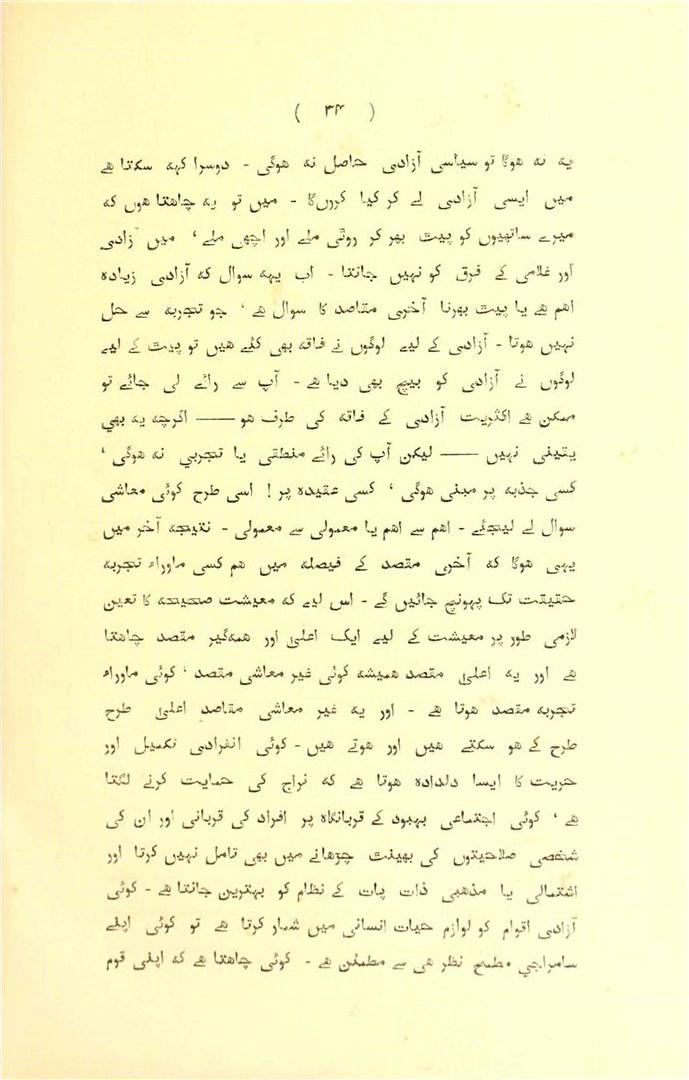 ( ۳۴ )
یہ نہ ہوگا تو سیاسی آزادی حاصل نہ ہوگی - دوسرا کہہ سکتا ہے
میں ایسی آزادی لے کر کیا کروں‌گا - میں تو یہ چاہتا ہوں کہ
میرے ساتھیوں کو پیٹ بھر کر روٹی ملے اور اچھی ملے ، میں آزادی
اور غلامی کے فرق کو نہیں جانتا - اب یہہ سوال کہ آزادی زیادہ
اہم ہے یا پیٹ بھرنا آخری مقاصد کا سوال ہے ، جو تجربہ سے حل
نہیں ہوتا - آزادی کے لیے لوگوں نے فاقہ بھی کئے ہیں تو پیٹ کے لیے
لوگوں نے آزادی کو بیچ بھی دیا ہے - آپ سے رائے لی جائے تو
ممکن ہے اکثریت آزادی کے فاقہ کی طرف ہو —— اگرچہ یہ بھی
یقینی نہیں —— لیکن آپ کی رائے منطقی یا تجربی نہ ہوگی ،
کسی جذبہ پر مبنی ہوگی ، کسی عقیدہ پر ! اسی طرح کوئی معاشی
سوال لے لیجئے - اہم سے اہم یا معمولی سے معمولی - نتیجہ آخر میں
یہی ہوگا کہ آخری مقصد کے فیصلہ میں ہم کسی ماوراء تجربہ
حقیقت تک پہونچ جائیں گے - اس لیے کہ معیشت صحیحہ کا تعین
لازمی طور پر معیشت کے لیے ایک اعلیٰ اور ہمہ‌گیر مقصد چاہتا
ہے اور یہ اعلیٰ مقصد ہمیشہ کوئی غیر معاشی مقصد ، کوئی ماوراء
تجربہ مقصد ہوتا ہے - اور یہ غیر معاشی مقاصد اعلیٰ طرح
طرح کے ہو سکتے ہیں اور ہوتے ہیں - کوئی انفرادی تکمیل اور
حریت کا ایسا دلدادہ ہوتا ہے کہ نراج کی حمایت کرنے لگتا
ہے ، کوئی اجتماعی بہبود کے قربانگاہ پر افراد کی قربانی اور ان کی
شخصی صلاحیتوں کی بھینٹ چڑھانے میں بھی تامل نہیں کرتا اور
اشتمالی یا مذہبی ذات پات کے نظام کو بہترین جانتا ہے - کوئی
آزادی اقوام کو لوازم حیات انسانی میں شمار کرتا ہے تو کوئی اپنے
سامراجی مطمح نظر ہی سے مطمئن ہے - کوئی چاہتا ہے کہ اپنی قوم